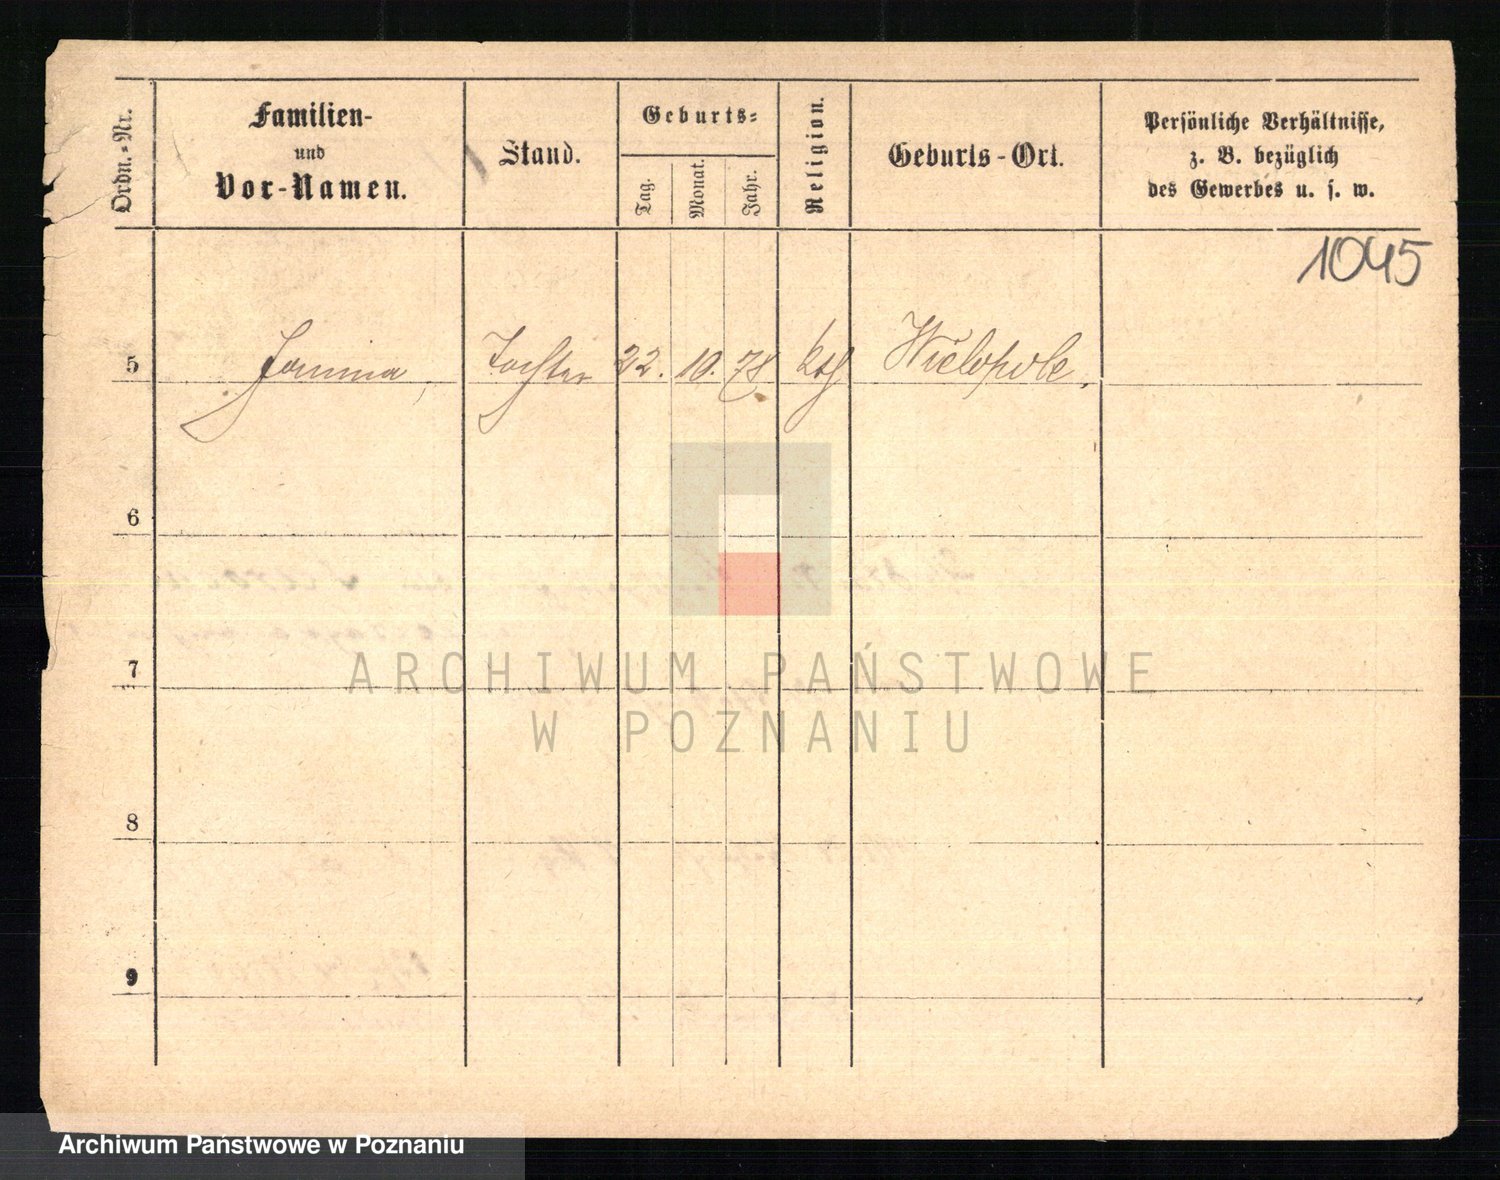 Ordn.-Nr.
Familien-
und
Vor-Namen.
Stand.
Geburts-
Tag.
Monat.
Jahr.
Religion.
Geburts-Ort.
Persönliche Verhältnisse,
z. B. bezüglich
des Gewerbes u. s. w.
1045
5 Janina, Tochter 22. 10. 78 kth Wielopole.
6
7
8
9
ARCHIWUM PAŃSTWOWE
W POZNANIU
Archiwum Państwowe w Poznaniu